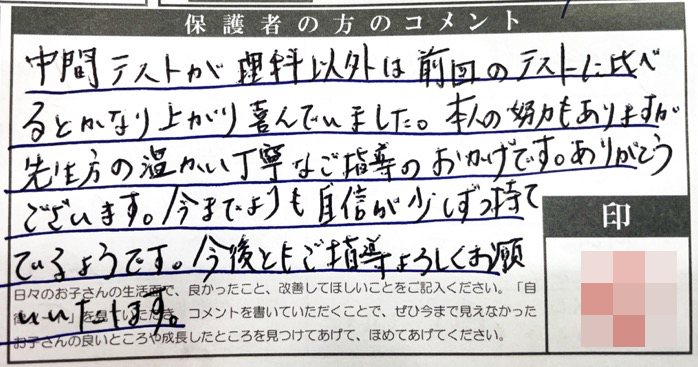 保護者の方のコメント
中間テストが理科以外は前回のテストに比べ
るとかなり上がり喜んでいました。本人の努力もありますが
先生方の温かい丁寧なご指導のおかげです。ありがとう
ございます。今までよりも自信が少しずつ持て
ているようです。今後ともご指導よろしくお願
いいたします。
印
日々のお子さんの生活面で、良かったこと、改善してほしいことをご記入ください。「自
を見ていただき、コメントを書いていただくことで、ぜひ今まで見えなかった
お子さんの良いところや成長したところを見つけてあげて、ほめてあげてください。